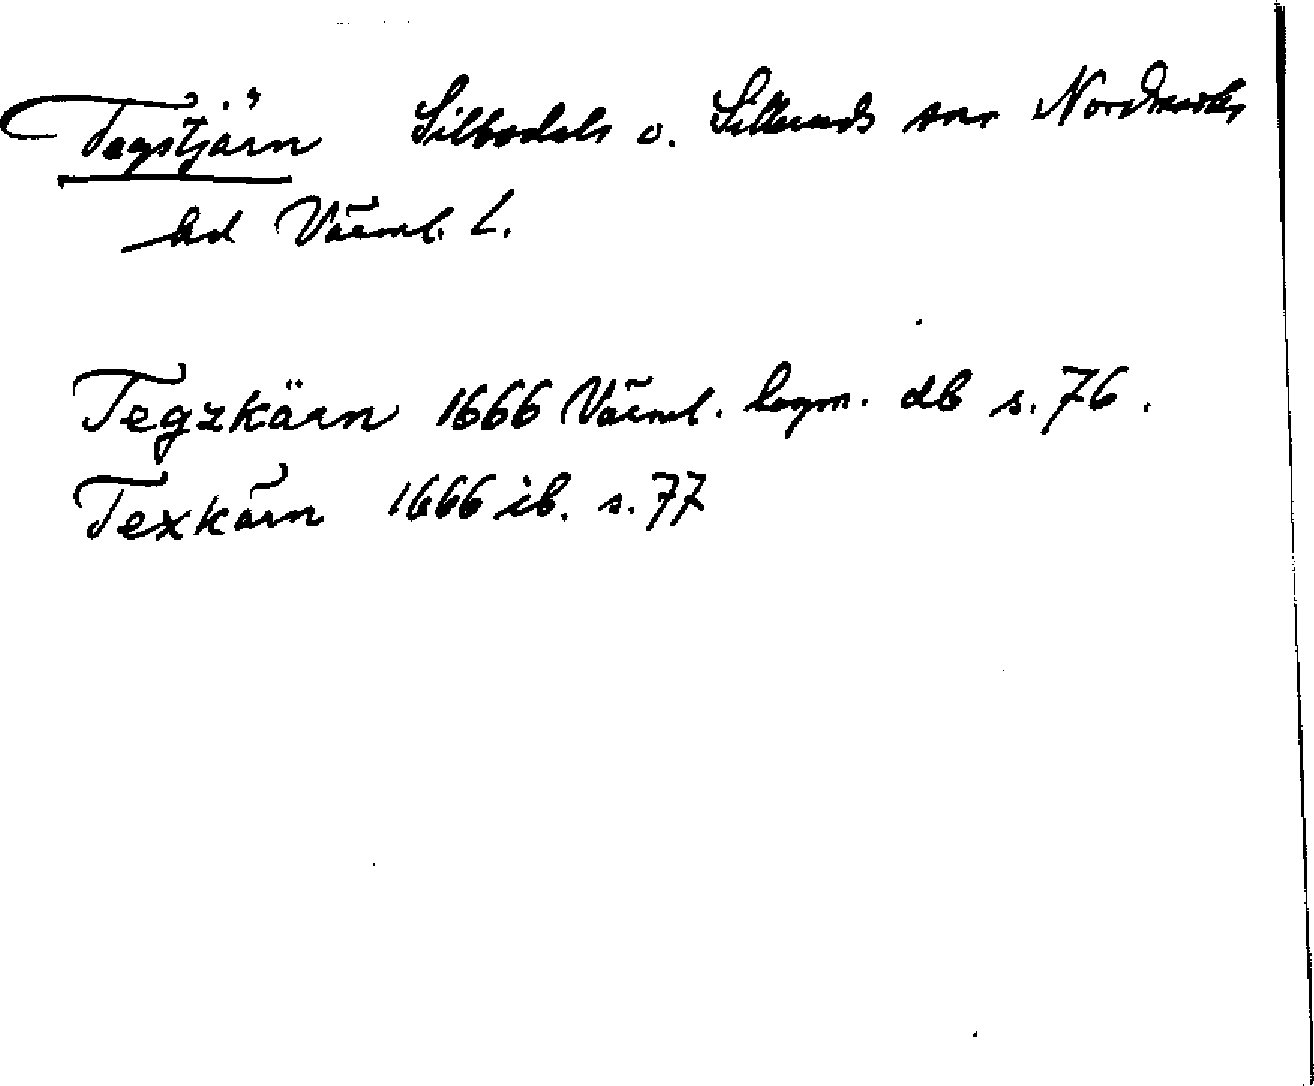 Tegstjärn Silbodals o. Silleruds snr Nordmarks
hd Värml. l.
Tegzkärn 1666 Värml. lagm. db s. 76.
Texkärn 1666 ib. s. 77